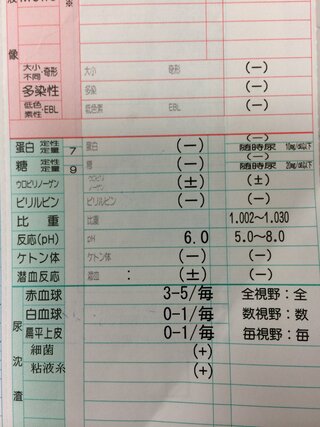 像
大小不同・奇形 大小 奇形 (−)
多染性 多染 (−)
低色素性・EBL 低色素 EBL (−)
(−)
蛋白 定性 定量 7 蛋白 (−) 随時尿 10mg/dL以下
(−)
糖 定性 定量 9 糖 (−) 随時尿 20mg/dL以下
ウロビリノーゲン ウロビリノーゲン (±) (±)
ビリルビン ビリルビン (−) (−)
比重 比重 1.002〜1.030
反応(pH) pH 6.0 5.0〜8.0
ケトン体 ケトン体 (−) (−)
潜血反応 潜血 : (±) (−)
尿沈渣
赤血球 3-5/毎 全視野:全
白血球 0-1/毎 数視野:数
扁平上皮 0-1/毎 毎視野:毎
細菌 (+)
粘液糸 (+)